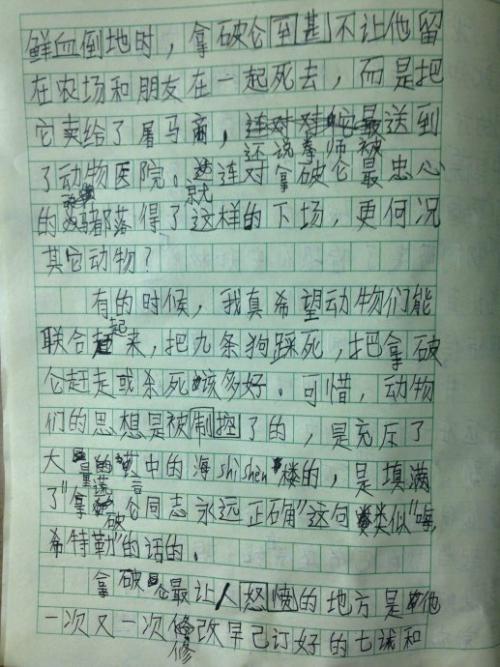 鲜血倒地时，拿破仑到甚不让他留
在农场和朋友在一起死去，而是把
它卖给了屠马商，还说拳师被送到
了动物医院。就连对拿破仑最忠心
的都落得了这样的下场，更何况
其它动物？
有的时候，我真希望动物们能
联合起来，把九条狗踩死，把拿破
仑赶走或杀死该多好。可惜，动物
们的思想是被制控了的，是充斥了
大量的谎言中的海shi shen楼的，是填满
了“拿破仑同志永远正确”这句类似“嗨
希特勒”的话的。
拿破仑最让人怒愤的地方是他
一次又一次修改早已订好的七诫和